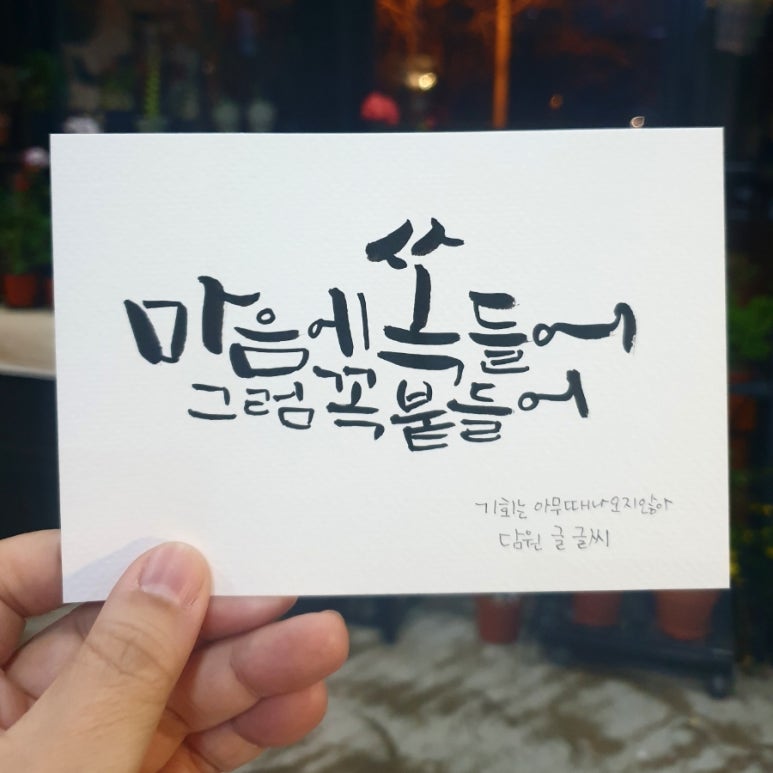 마음에 쏙 들어
그럼 꼭 붙들어
기회는 아무때나 오지않아
담원 글 글씨